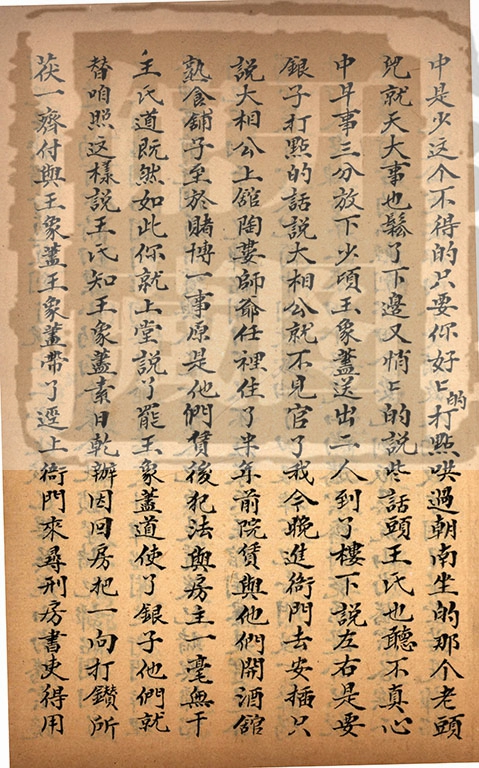 中是少这个不得的只要你好〻的打點哄過朝南坐的那个老頭
兒就天大事也鬆了下邊又悄〻的說些話頭王氏也聽不真心
中斗事三分放下少頃王象藎送出二人到了樓下說左右是要
銀子打點的話說大相公就不見官了我今晚進衙門去安插只
說大相公上館陶婁師爺任裡住了半年前院賃與他們開酒館
熟食舖子至於賭博一事原是他們賃後犯法與房主一毫無干
王氏道既然如此你就上堂說了罷王象藎道使了銀子他們就
替咱照这樣說王氏知王象藎素日乾辦因回房把一向打鑽所
茯一齊付與王象藎王象藎帶了逕上衙門來尋刑房書吏得用